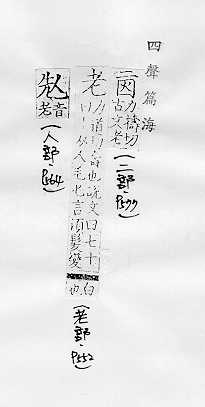 四聲篇海
力禱切
古文老
(二部·
老
力道切壽也說文曰七十
曰丨从人毛匕言須髮變
白也
(老部·P552)
音老
(人部·P564)